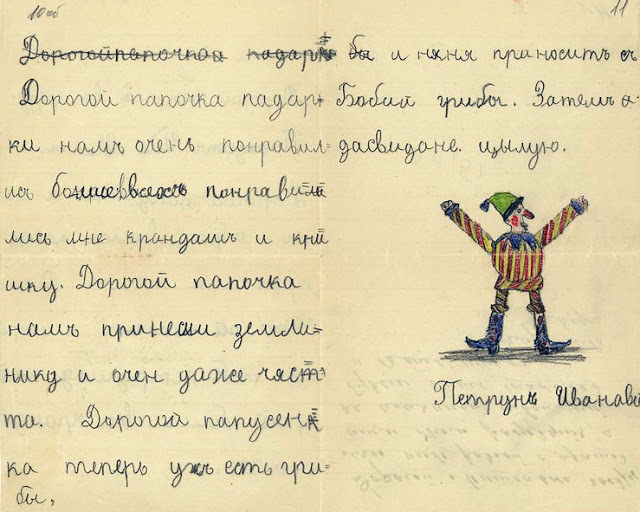 10 об
Дорогойпапочкой падарк
Дорогой папочка падар=
ки намъ очень понравил=
ись больше понравили
лись мне крандашъ и кни=
шку. Дорогой папочка
намъ принесли земли=
нику и очен даже част=
та. Дорогой папусен=
ка теперь ужъ есть гри=
бы,
11
бы и няня приноситъ съ
Бобий грибы. Затемъ
дасвидане. цылую.
Петрунъ Иванавъ